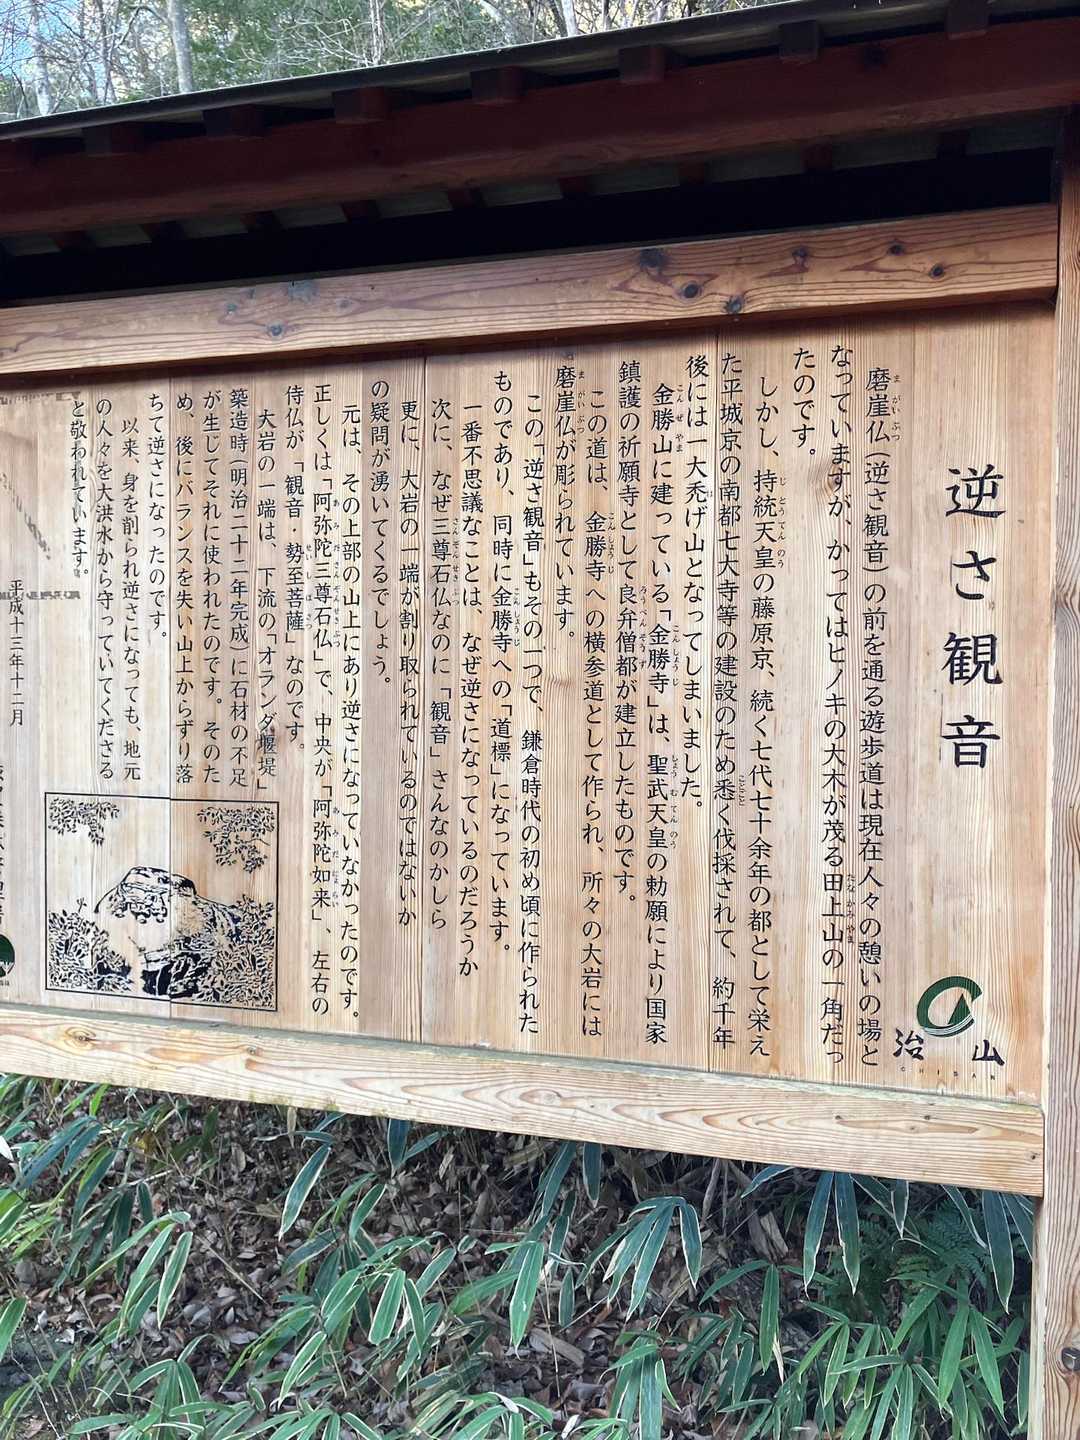 逆さ観音
磨崖仏(逆さ観音)の前を通る遊歩道は現在人々の憩いの場と
なっていますが、かってはヒノキの大木が茂る田上山の一角だっ
たのです。
しかし、持統天皇の藤原京、続く七代七十余年の都として栄え
た平城京の南都七大寺等の建設のため悉く伐採されて、約千年
後には一大禿げ山となってしまいました。
金勝山に建っている「金勝寺」は、聖武天皇の勅願により国家
鎮護の祈願寺として良弁僧都が建立したものです。
この道は、金勝寺への横参道として作られ、所々の大岩には
磨崖仏が彫られています。
この「逆さ観音」もその一つで、鎌倉時代の初め頃に作られた
ものであり、同時に金勝寺への「道標」になっています。
一番不思議なことは、なぜ逆さになっているのだろうか
次に、なぜ三尊石仏なのに「観音」さんなのかしら
更に、大岩の一端が割り取られているのではないか
の疑問が湧いてくるでしょう。
元は、その上部の山上にあり逆さになっていなかったのです。
正しくは「阿弥陀三尊石仏」で、中央が「阿弥陀如来」、左右の
侍仏が「観音・勢至菩薩」なのです。
大岩の一端は、下流の「オランダ堰堤」
築造時(明治二十二年完成)に石材の不足
が生じてそれに使われたのです。そのた
め、後にバランスを失い山上からずり落
ちて逆さになったのです。
以来、身を削られ逆さになっても、地元
の人々を大洪水から守っていてくださる
と敬われています。
平成十三年十二月
治山
CHISAN